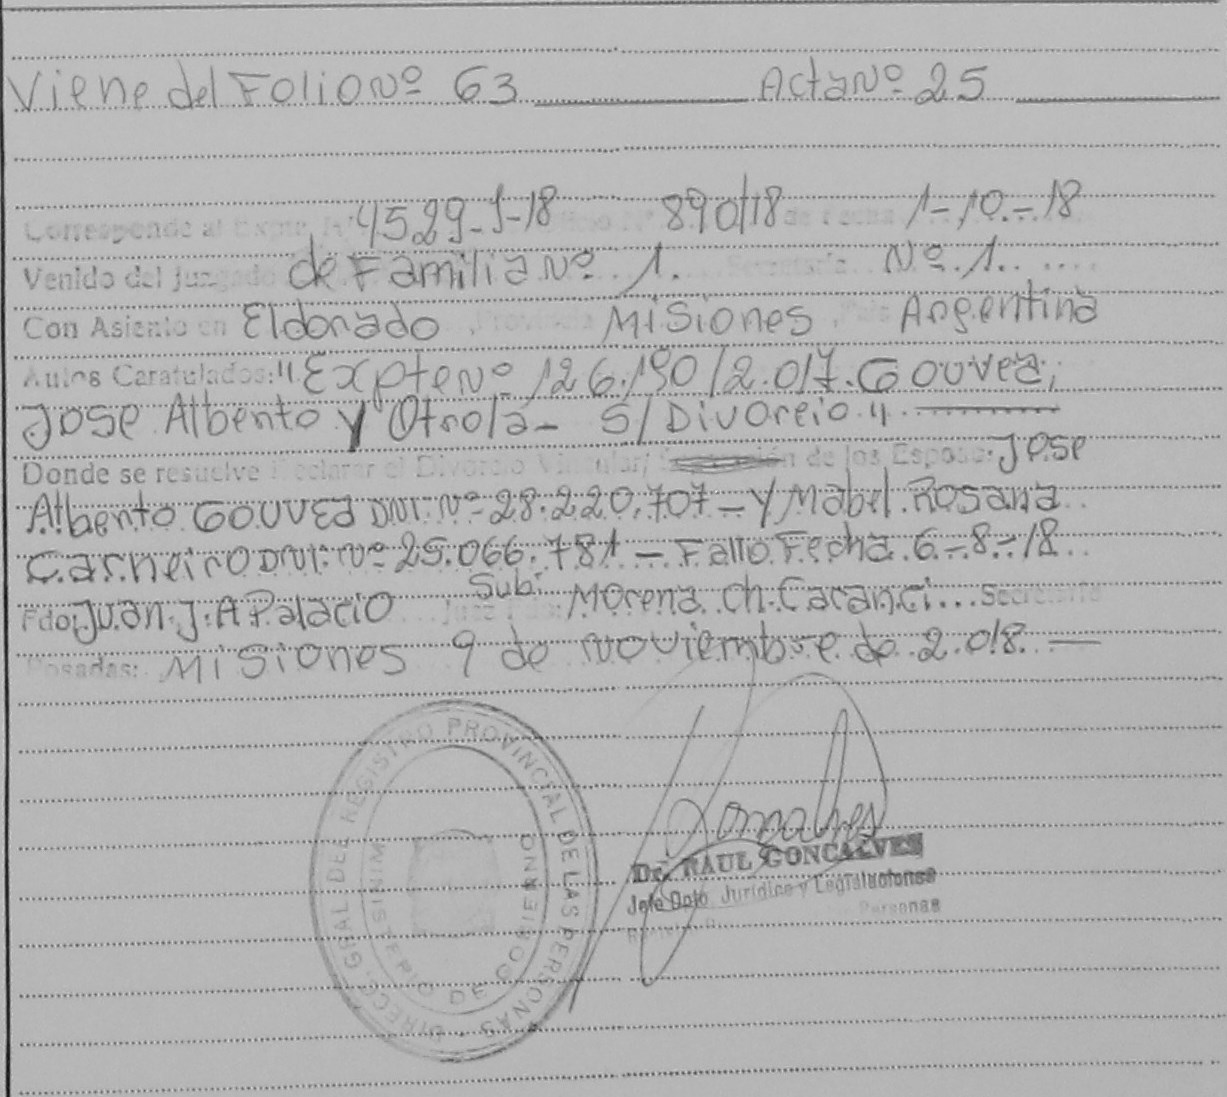 Viene del Folio Nº 63 Acta Nº 25
Corresponde al Expte. Nº 4529-J-18 Oficio Nº 890/18 de Fecha 1-10-18
Venido del Juzgado de Familia Nº 1. Secretaría Nº 1.
Con Asiento en Eldorado, Provincia Misiones, País Argentina
Autos Caratulados: "Expte Nº 126.190/2.017. Gouvea,
Jose Alberto y Otro/a - S/Divorcio"
Donde se resuelve Declarar el Divorcio Vincular/ de los Esposo: Jose
Alberto Gouvea DNI. Nº 28.220.707 - y Mabel Rosana
Carneiro DNI. Nº 25.066.781 - Fallo Fecha 6-8-18
Fdo: Juan J. A Palacio Juez Fdo: Sub. Morena Ch. Caranci... Secretaria
Posadas: Misiones 9 de Noviembre de 2.018.
DIRECC. GRAL. DEL REGISTRO PROVINCIAL DE LAS PERSONAS
MINISTERIO DE GOBIERNO
Dr. RAUL GONCALVES
Jefe Dpto. Jurídico y Legislaciones
Personas